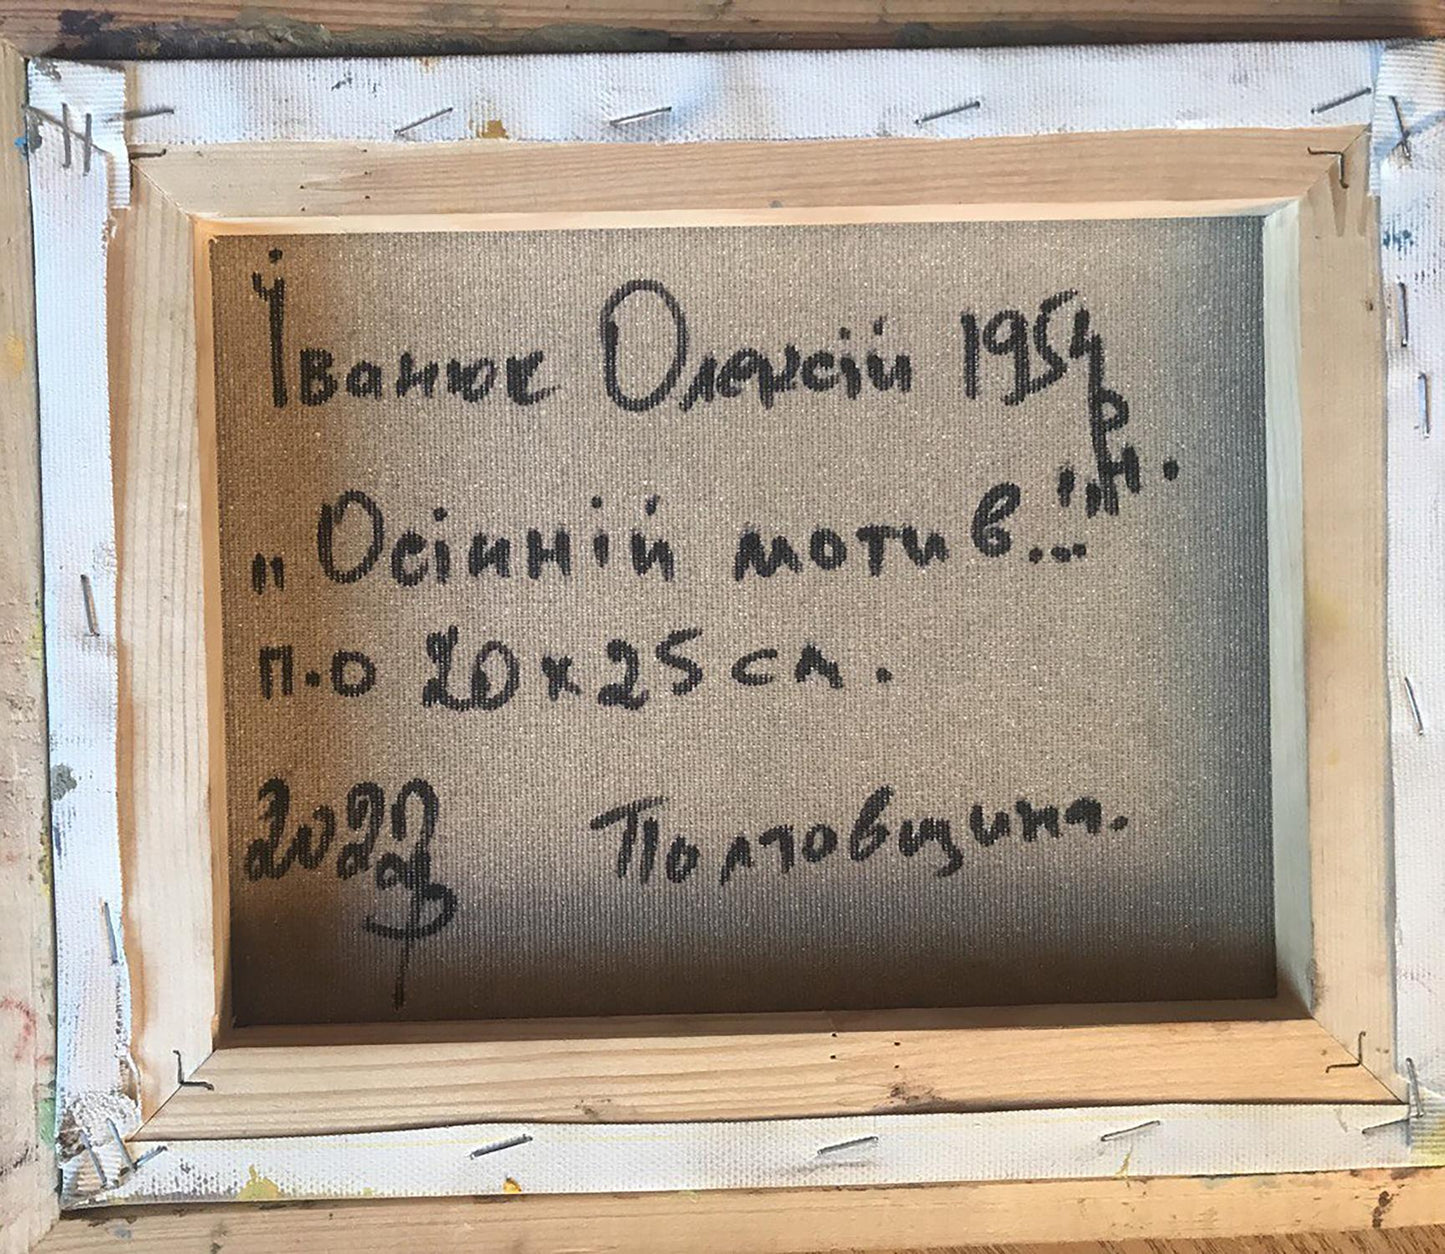 Іванюк Олексій 1954 р.н.
„Осінній мотив...!"
п.о 20x25см.
2022р Полтовщина.